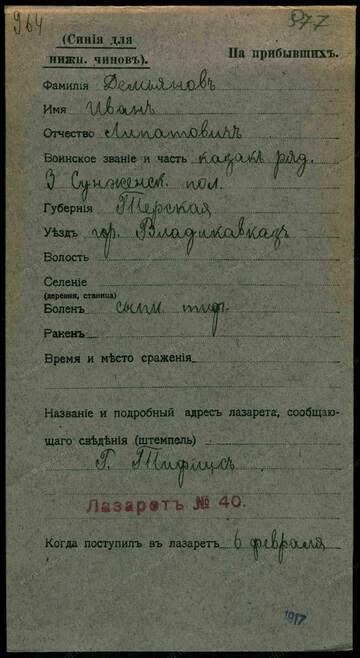 964
577
(Синія для
нижн. чиновъ).
На прибывшихъ.
Фамилія Демьяновъ
Имя Иванъ
Отчество Липатовичъ
Воинское званіе и часть казакъ ряд.
3 Сунженск. пол.
Губернія Терская
Уѣздъ гор. Владикавказъ
Волость
Селеніе
(деревня, станица)
Боленъ сыпн. тиф.
Раненъ
Время и мѣсто сраженія
Названіе и подробный адресъ лазарета, сообщаю-
щаго свѣдѣнія (штемпель)
Г. Тифлисъ
Лазаретъ № 40.
Когда поступилъ въ лазаретъ 6 февраля
1917